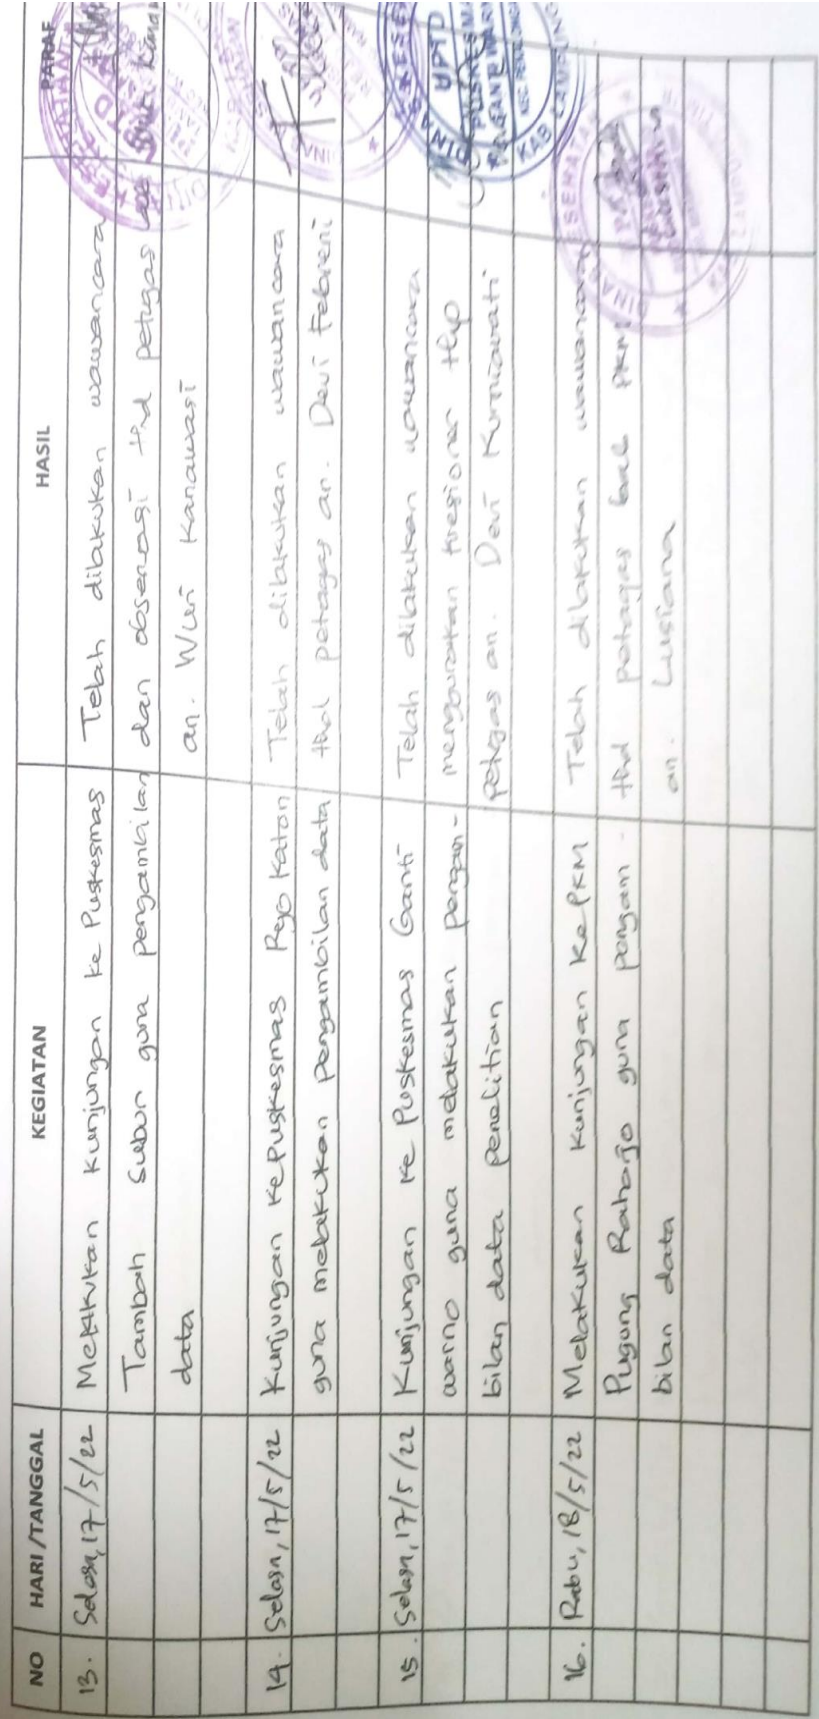 NO HARI /TANGGAL KEGIATAN HASIL PARAF
13. Selasa, 17/5/22 Melakukan Kunjungan ke Puskesmas Telah dilakukan wawancara
Tambah Subur guna pengambilan dan observasi thd petugas
data an. Wuri Kanawasi
14. Selasa, 17/5/22 Kunjungan ke Puskesmas Rejo Katon Telah dilakukan wawancara
guna melakukan pengambilan data thd petugas an. Devi Febreni
15. Selasa, 17/5/22 Kunjungan ke Puskesmas Ganti Telah dilakukan wawancara
warno guna melakukan pengam- menggunakan kuesioner thp
bilan data penelitian petugas an. Devi Kurniawati
16. Rabu, 18/5/22 Melakukan Kunjungan ke PKM Telah dilakukan wawancara
Pugung Raharjo guna pengam- thd petugas PKM
bilan data an. Lusiana
DINAS KESEHATAN
UPTD